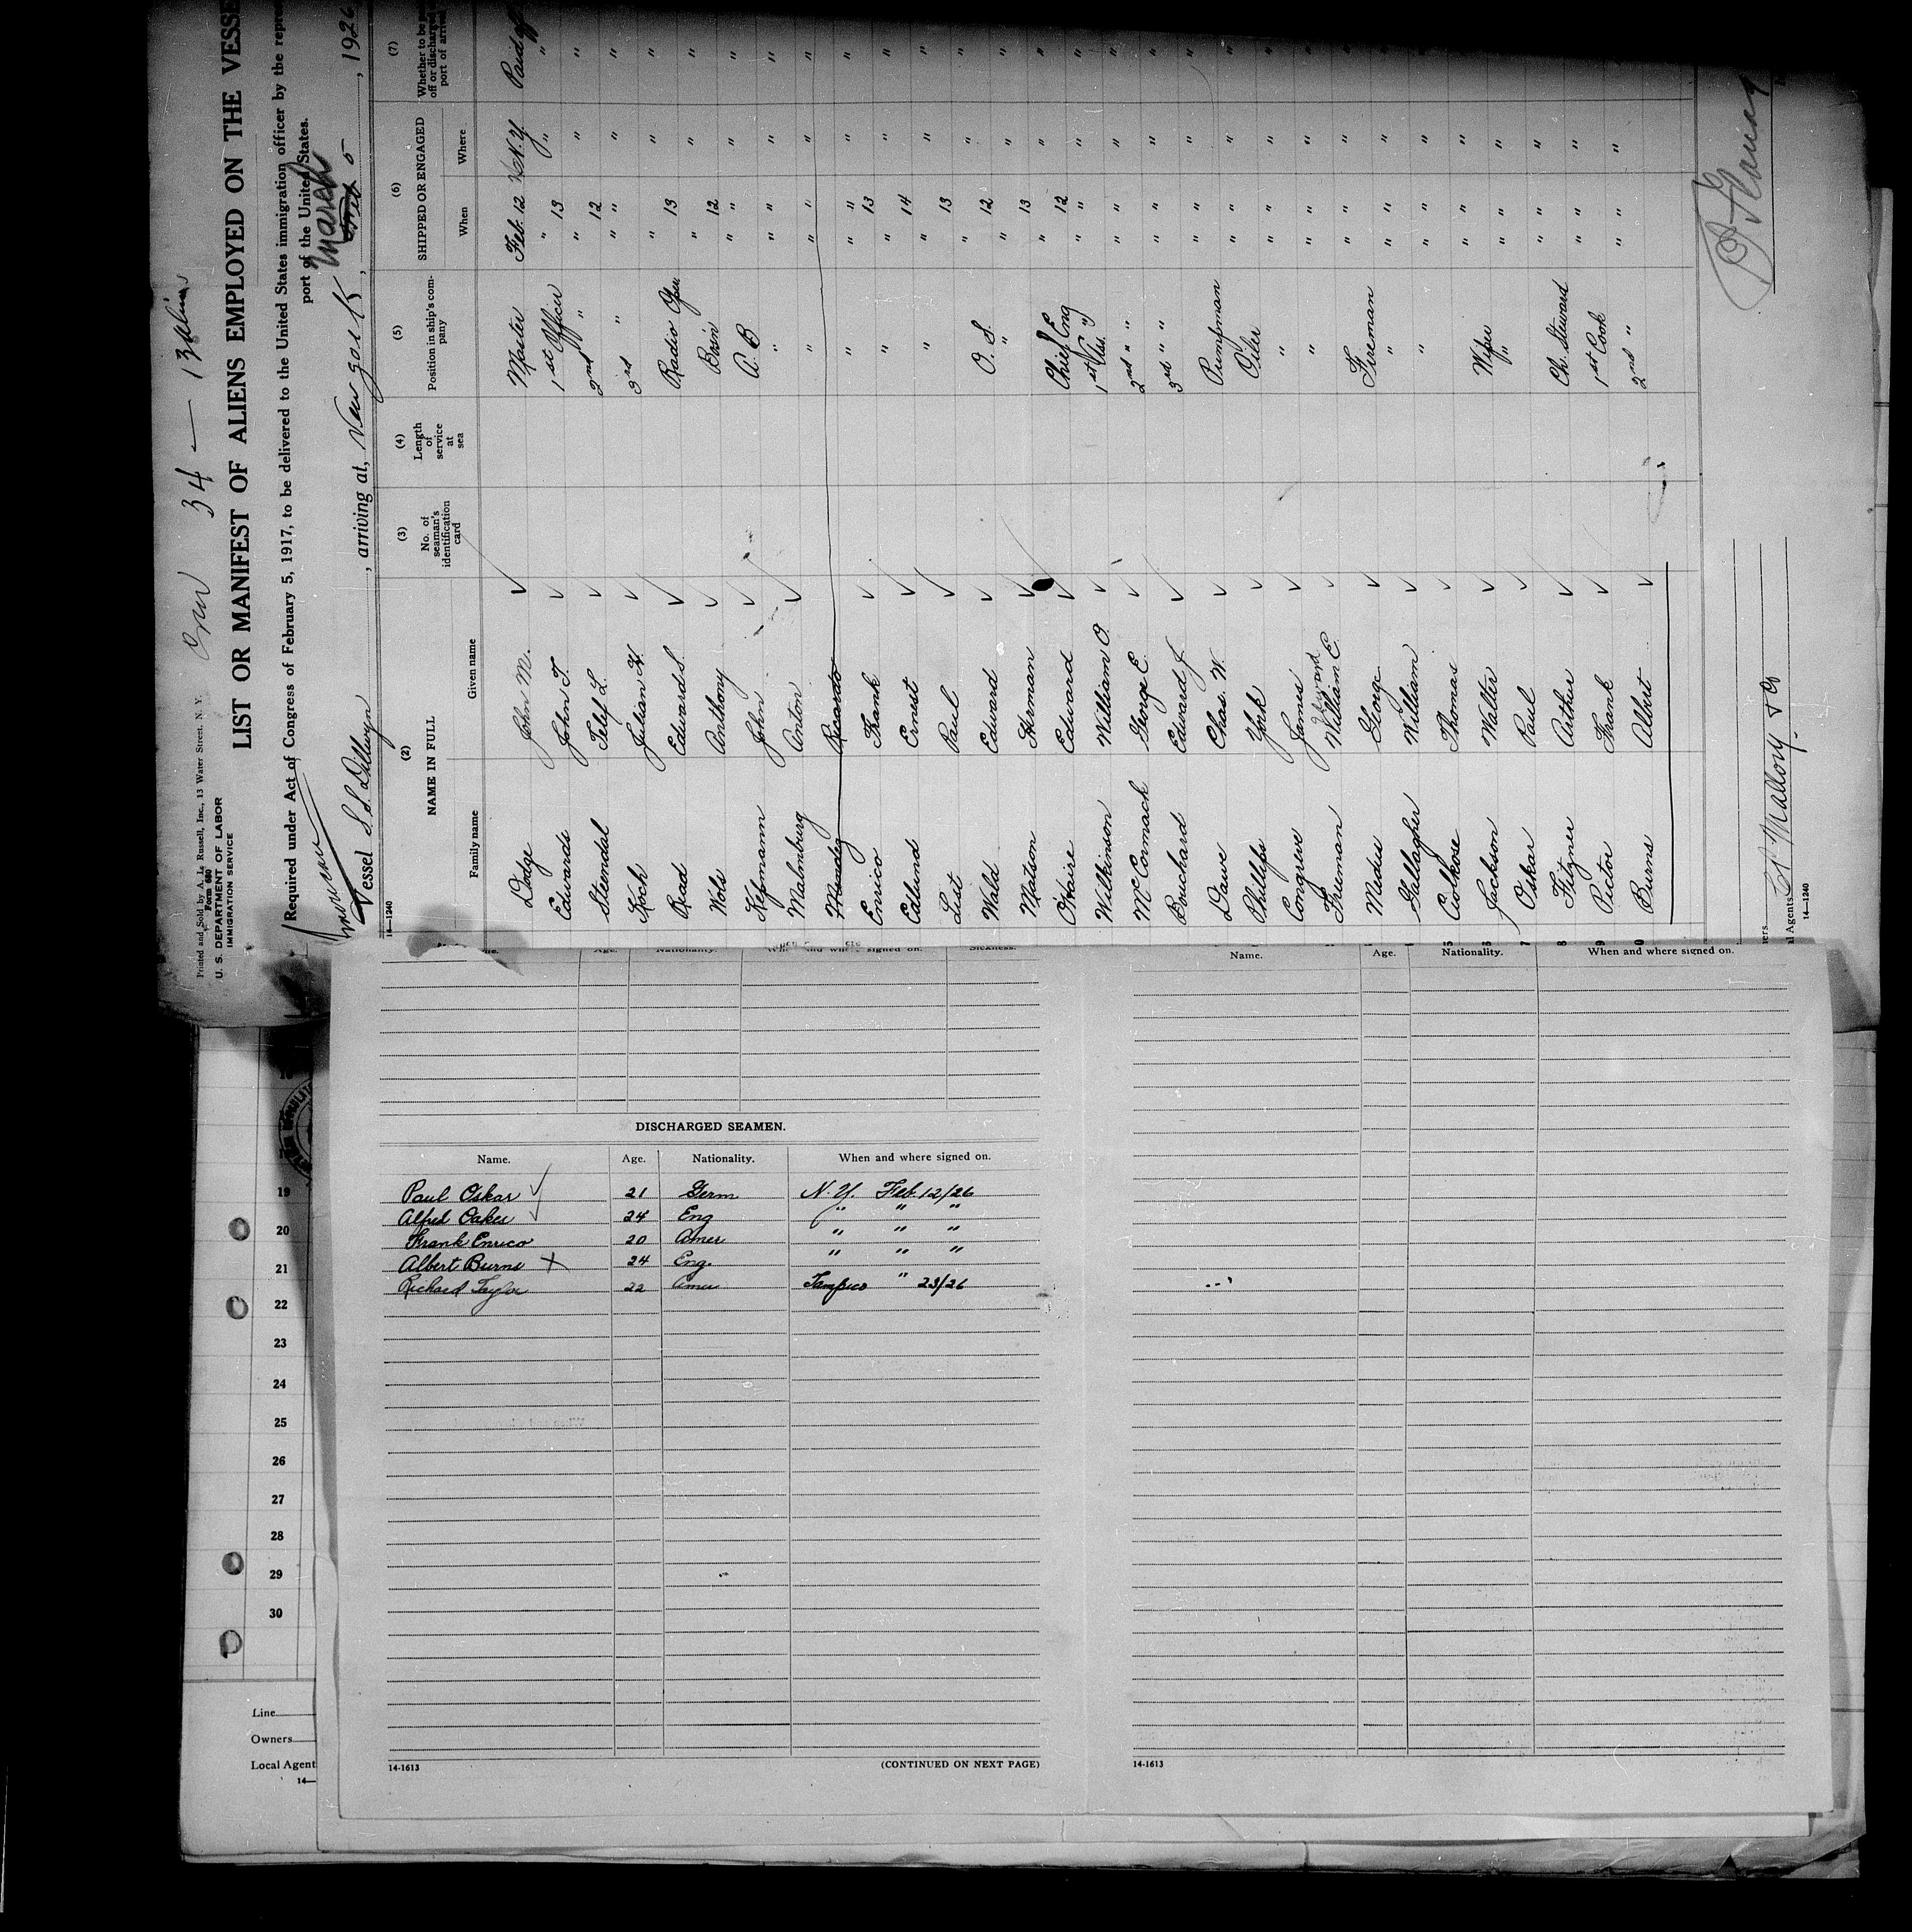 Crew 34 — 13 Aliens
Printed and Sold by A. L. Russell, Inc., 13 Water Street, N. Y.
Form 680
U. S. DEPARTMENT OF LABOR
IMMIGRATION SERVICE
LIST OR MANIFEST OF ALIENS EMPLOYED ON THE VESSE
Required under Act of Congress of February 5, 1917, to be delivered to the United States immigration officer by the repre
port of the United States.
Vessel S.S. Dillwyn, arriving at, New York, March 5, 1926
14—1240
(2) (3) (4) (5) (6) (7)
NAME IN FULL
Family name Given name
No. of seaman's identification card
Length of service at sea
Position in ship's company
SHIPPED OR ENGAGED
When Where
Whether to be
off or discharged
port of arriv
Dodge John M. Master Feb. 12 N.Y. Paid off
Edwards John T. 1st Officer " 13 " "
Stendal Telef L. 2nd " " 12 " "
Koch Julian H. 3rd " " " " "
Read Edward S. Radio Oper " 13 " "
Wols Anthony Bosn " 12 " "
Kepmann John A. B " " " "
Malmburg Anton " " " " "
Mendez Ricardo " " " " "
Enrico Frank " " 13 " "
Edlund Ernest " " 14 " "
List Paul " 13 " "
Wald Edward O. S. " 12 " "
Matson Herman " " 13 " "
O'Haire Edward Chief Eng " 12 " "
Wilkinson William O. 1st Ass. " " " " "
McCormack George E. 2nd " " " " " "
Bouchard Edward J. 3rd " " " " " "
Dawe Chas. W. Pumpman " " " "
Phillips York Oiler " " " "
Congreve James " " " " "
Freeman William E. " " " " "
Medus George Fireman " " " "
Gallagher William " " " " "
Thomas " " " "
Jackson Walter Wiper " " " "
Oskar Paul " " " " "
Fitzner Arthur Ch. Steward " " " "
Pictor Frank 1st Cook " " "
Burns Albert 2nd " " " "
Mallory & Co
l Agents
14—1240
Name. Age. Nationality. When and where signed on. Sickness.
Name. Age. Nationality. When and where signed on.
DISCHARGED SEAMEN.
Name. Age. Nationality. When and where signed on.
Paul Oskar 21 Germ N.Y. Feb. 12/26
Alfred Oakes 24 Eng " " "
Frank Enrico 20 Amer " " "
Albert Burns 24 Eng. " " "
Richard Taylor 22 Amer Tampico " 23/26
14-1613 (CONTINUED ON NEXT PAGE)
14-1613
19
20
21
22
23
24
25
26
27
28
29
30
Line
Owners
Local Agent
14—